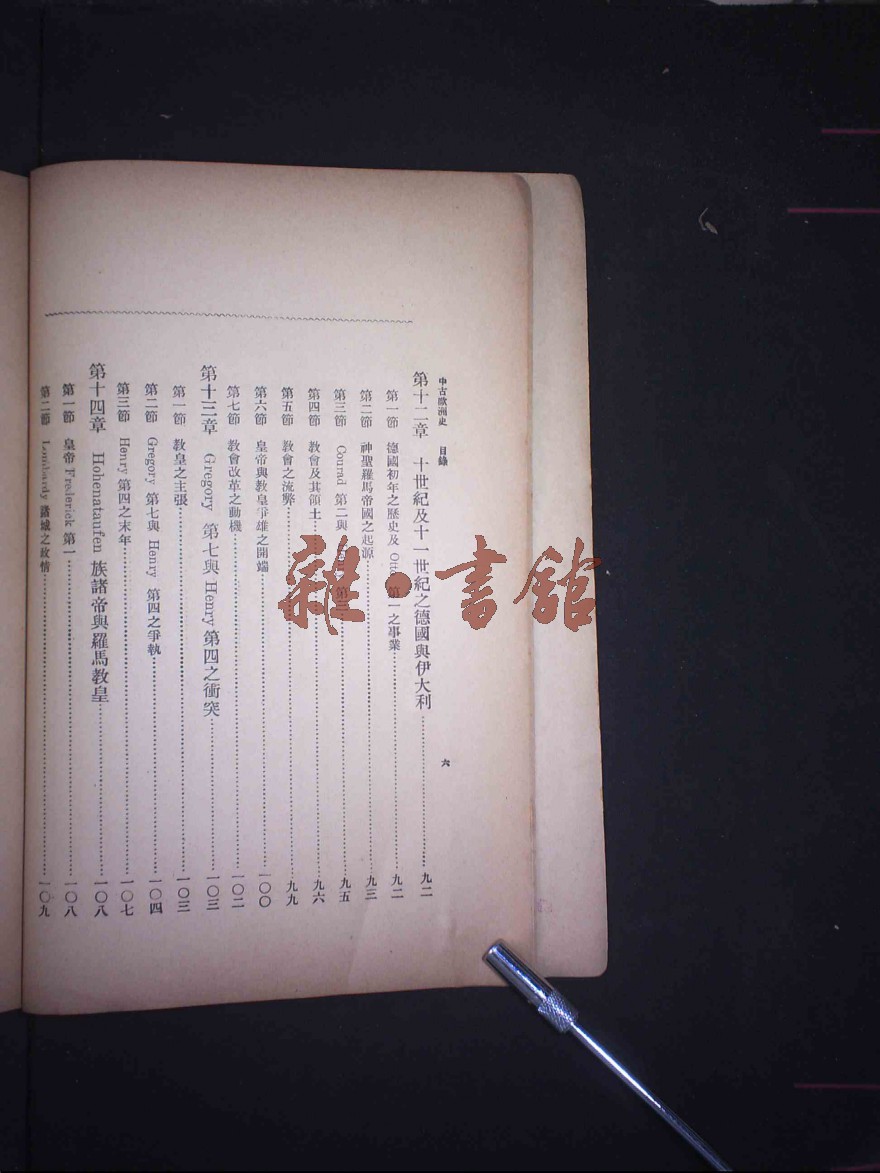 中古歐洲史 目錄 六
第十二章 十世紀及十一世紀之德國與伊大利……九二
第一節 德國初年之歷史及 Otto 第一之事業……九二
第二節 神聖羅馬帝國之起源……九三
第三節 Conrad 第二與 第三……九五
第四節 教會及其領土……九六
第五節 教會之流弊……九九
第六節 皇帝與教皇爭雄之開端……一〇〇
第七節 教會改革之動機……一〇二
第十三章 Gregory 第七與 Henry 第四之衝突……一〇三
第一節 教皇之主張……一〇三
第二節 Gregory 第七與 Henry 第四之爭執……一〇四
第三節 Henry 第四之末年……一〇七
第十四章 Hohenataufen 族諸帝與羅馬教皇……一〇八
第一節 皇帝 Frederick 第一……一〇八
第二節 Lombardy 諸城之政情……一〇九
雜·書館